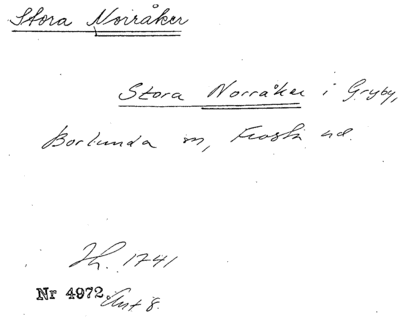 Stora Norråker
Stora Norråker i Gryby,
Borlunda sn, Frosta hd.
Jh. 1741
Nr 4972 Avt 8.